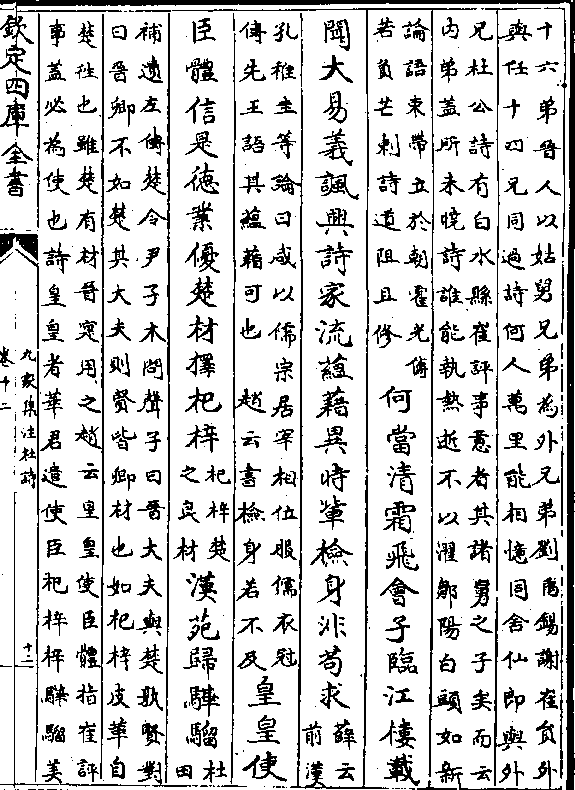 十六弟晉人以姑舅兄弟為外兄弟劉禹錫謝崔員外
與任十四兄同過詩何人萬里能相憶同舍仙郎與外
兄杜公詩有白水縣崔評事意者其諸舅之子矣而云
内弟盖所未曉詩誰能執熱逝不以濯鄒陽白頭如新
論語束帶立於朝霍光傳
若負芒刺詩道阻且修
何當清霜飛會子臨江樓載
聞大易義諷興詩家流藴藉異時輩檢身非苟求
薛云
前漢
孔稚圭等論曰咸以儒宗居宰相位服儒衣冠
傳先王語其藴藉可也 趙云書檢身若不及
皇皇使
臣體信是徳業優楚材擇杞梓
杞梓楚
之良材
漢苑歸驊騮
杜
田
補遺左傳楚令尹子木問聲子曰晉大夫與楚孰賢對
曰晉卿不如楚其大夫則賢皆卿材也如杞梓皮革自
楚徃也雖楚有材晉寔用之趙云皇皇使臣體指崔評
事盖必為使也詩皇皇者華君遣使臣杞梓梓驊騮美
欽定四庫全書
九家集注杜詩
卷十二
十二